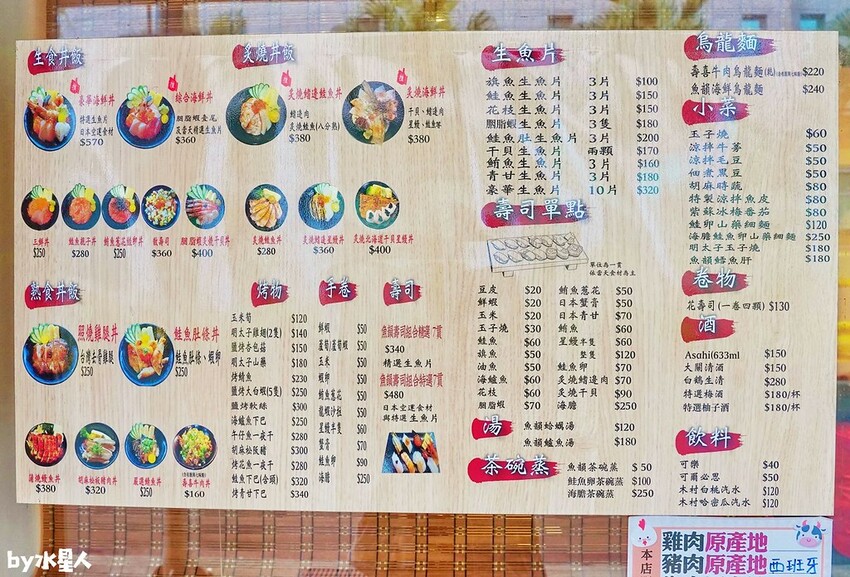 生食丼飯
豪華海鮮丼
特選生魚片
日本空運食材
$570
綜合海鮮丼
胭脂蝦壹尾
及當天精選生魚片
$360
三鮮丼
$250
鮭魚親子丼
$280
鮪魚蔥花鮭卵丼
$250
散壽司
$360
胭脂蝦炙燒干貝丼
$400
炙燒丼飯
炙燒鰭邊鮭魚丼
鰭邊肉
炙燒鮭魚(八分熟)
$380
炙燒海鮮丼
干貝、鰭邊肉
星鰻、鮭魚
$380
炙燒鮭魚丼
$280
炙燒鰭邊星鰻丼
$360
炙燒北海道干貝星鰻丼
$400
熟食丼飯
照燒雞腿丼
台灣去骨雞腿
$250
鮭魚肚條丼
鮭魚肚條、蝦卵
$250
蒲燒鰻魚丼
$380
胡麻松板豬肉丼
$320
嚴選鯖魚丼
$250
壽喜牛肉丼
$160
烤物
玉米筍 $120
明太子雞翅(2隻) $140
鹽烤杏包菇 $150
明太子山藥 $180
烤鯖魚 $230
鹽烤大白蝦(5隻) $250
鹽烤軟絲 $300
海鱸魚下巴 $250
午仔魚一夜干 $280
胡麻松板豬 $300
烤花魚一夜干 $280
鮭魚下巴(含頭) $320
烤青甘下巴 $340
手卷
鮮蝦 $50
蘆筍/蘆筍蝦 $50
玉米 $50
蝦卵 $50
鮪魚蔥花 $50
龍蝦沙拉 $50
星鰻半隻 $60
蟹膏 $70
鮭魚卵 $90
海膽 $250
壽司
魚韻壽司組合精選 7貫
$340
精選生魚片
魚韻壽司組合特選 7貫
$480
日本空運食材
與特選生魚片
生魚片
旗魚生魚片 3片 $100
鮭魚生魚片 3片 $150
花枝生魚片 3片 $150
胭脂蝦生魚片 3隻 $180
鮭魚肚生魚片 3片 $200
干貝生魚片 兩顆 $170
鮪魚生魚片 3片 $160
青甘生魚片 3片 $180
豪華生魚片 10片 $320
壽司單點
單位為一貫
依當天食材為主
豆皮 $20
鮮蝦 $20
玉米 $20
玉子燒 $30
鮭魚 $50
旗魚 $50
油魚 $50
海鱺魚 $60
花枝 $60
胭脂蝦 $70
鮪魚蔥花 $50
日本蟹膏 $50
日本青甘 $70
鮪魚 $60
星鰻半隻 $60
整隻 $120
鮭魚卵 $70
炙燒鰭邊肉 $70
炙燒干貝 $90
海膽 $250
湯
魚韻蛤蠣湯 $120
魚韻鱸魚湯 $180
茶碗蒸
魚韻茶碗蒸 $50
鮭魚卵茶碗蒸 $100
海膽茶碗蒸 $250
烏龍麵
壽喜牛肉烏龍麵 $220
魚韻海鮮烏龍麵 $240
小菜
玉子燒 $60
涼拌牛蒡 $50
涼拌毛豆 $50
佃煮黑豆 $50
胡麻時蔬 $80
特製涼拌魚皮 $80
紫蘇冰梅番茄 $80
鮭卵山藥細麵 $120
海膽鮭魚卵山藥細麵 $250
明太子玉子燒 $180
魚韻鱈魚肝 $180
卷物
花壽司(一卷四顆) $130
酒
Asachi(633ml $150
大關清酒 $150
白鶴生酒 $280
特選梅酒 $180/杯
特選柚子酒 $180/杯
飲料
可樂 $40
可爾必思 $50
木村白桃汽水 $120
木村哈密瓜汽水 $120
本店
雞肉原產地
豬肉原產地 西班牙
by水星人